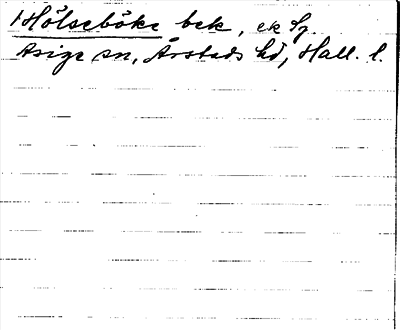 Hölseböke bek, ek Sg.
Asige sn, Årstads hd, Hall. l.